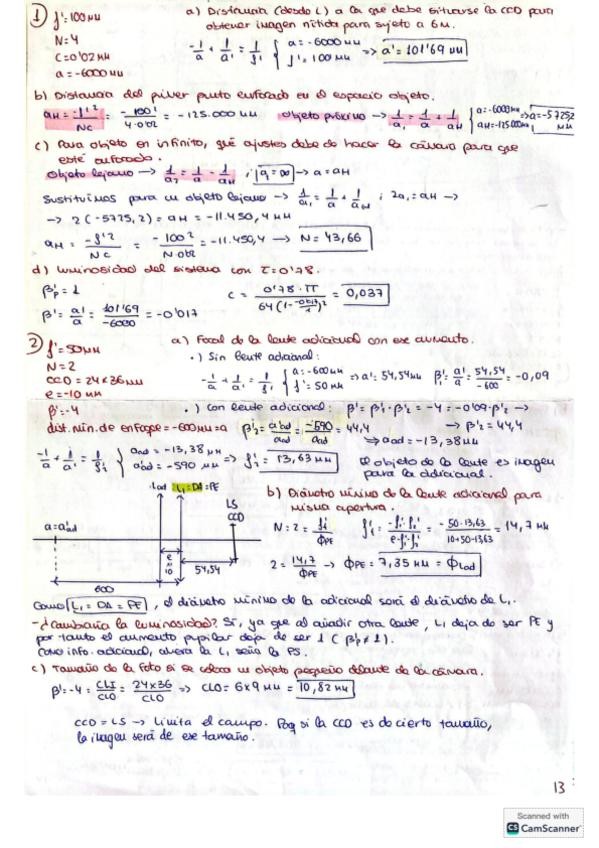 1) f'=100mm
N=4
C=0'02mm
a=-6000mm
a) Distancia (desde L) a la que debe situarse la CCD para
obtener imagen nítida para sujeto a 6m.
-1/a + 1/a' = 1/f' { a=-6000mm f'=100mm => a'=101'69 mm
b) Distancia del primer punto enfocado en el espacio objeto.
aH = -f'²/NC = -100²/4·0'02 = -125.000mm objeto próximo → 1/a₁ = 1/a + 1/aH { a=-6000mm aH=-125.000mm => a=-5725,2 mm
c) Para objeto en infinito, qué ajustes debe de hacer la cámara para que
esté enfocado.
Objeto lejano → 1/a₂ = 1/a - 1/aH ; a₂=∞ → a=aH
Sustituimos para un objeto lejano → 1/a₁ = 1/a + 1/aH ; 2a₁=aH →
→ 2(-5725,2) = aH = -11.450,4 mm
aH = -f'²/NC = -100²/N·0'02 = -11.450,4 → N = 43,66
d) Luminosidad del sistema con τ=0'78.
β'p = 1
β' = a'/a = 101'69/-6000 = -0'017
C = 0'78·π/64(1-(-0'017)/1)² = 0,037
2) f'=50mm
N=2
CCD=24x36mm
e=-10mm
β'=-4
dist. min. de enfoque=-600mm=a
a) Focal de la lente adicional con ese aumento.
·) Sin lente adicional:
-1/a + 1/a' = 1/f' { a=-600mm f'=50mm => a'=54,54mm β'₁ = a'/a = 54,54/-600 = -0,09
·) Con lente adicional: β'=β'₁·β'₂ = -4 = -0'09·β'₂ →
→ β'₂ = 44,4
β'₂ = a'ad/aad = -590/aad = 44,4
=> aad = -13,38mm
-1/a + 1/a' = 1/f' { aad = -13,38mm a'ad = -590mm => f' = 13,63mm
El objeto de la lente es imagen
para la adicional.
Lad L₁=DA=PE
LS
CCD
a=a'ad
e=10
54,54
600
b) Diámetro mínimo de la lente adicional para
misma apertura.
N=2= f'/ΦPE f' = -50·13,63/10+50·13,63 = 14,7 mm
2 = 14,7/ΦPE → ΦPE = 7,35mm = ΦLad
Como L₁=DA=PE, el diámetro mínimo de la adicional será el diámetro de L₁.
-¿Cambiaría la luminosidad? Sí, ya que al añadir otra lente, L₁ deja de ser PE y
por tanto el aumento pupilar deja de ser 1 (β'p≠1).
Como info. adicional, ahora la L₁ sería la PS.
c) Tamaño de la foto si se coloca un objeto pequeño delante de la cámara.
β'=-4 = CLI/CLO = 24x36/CLO => CLO = 6x9mm = 10,82mm
CCD = LS → Limita el campo. Pq si la CCD es de cierto tamaño,
la imagen será de ese tamaño.
13
Scanned with
CS CamScanner